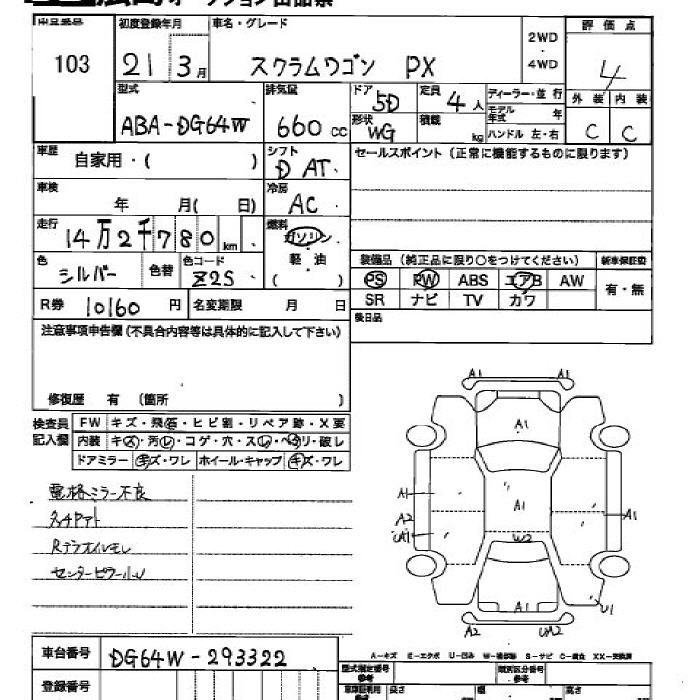 オークション出品票
出品番号 初度登録年月 車名・グレード 2WD・4WD 評価点
103 21 3月 スクラムワゴン PX 4
型式 排気量 ドア 5D 定員 4人 ディーラー・並行 外装 内装
ABA-DG64W 660cc 形状 WG 積載 kg モデル年式 年 ハンドル 左・右 C C
車歴 自家用・( ) シフト D AT セールスポイント(正常に機能するものに限ります)
車検 年 月( 日) 冷房 AC
走行 14万2千780km 燃料 ガソリン
色 シルバー 色替 色コード Z2S 軽油 ( ) 装備品(純正品に限り○をつけてください) 新車保証書
PS PW ABS エアB AW 有・無
R券 10160円 名変期限 月 日 SR ナビ TV カワ
注意事項申告欄(不具合内容等は具体的に記入して下さい) 後日品
修復歴 有 (箇所 )
検査員記入欄 FW キズ・飛石・ヒビ割・リペア跡・X要
内装 キズ・汚レ・コゲ・穴・スレ・ヘタリ・破レ
ドアミラー キズ・ワレ ホイール・キャップ キズ・ワレ
電格ミラー不良
Rデフオイルモレ
センターピラー小U
A1 A1
A1
A1 A1
A2 A1
UA1
W2
A1 U1
A2 UA2
A-キズ E-エクボ U-凹み W-補修跡 S-サビ C-腐食 XX-交換済
車台番号 DG64W-293322 型式指定番号 参考 類別区分番号 参考
登録番号 長さ 幅 高さ